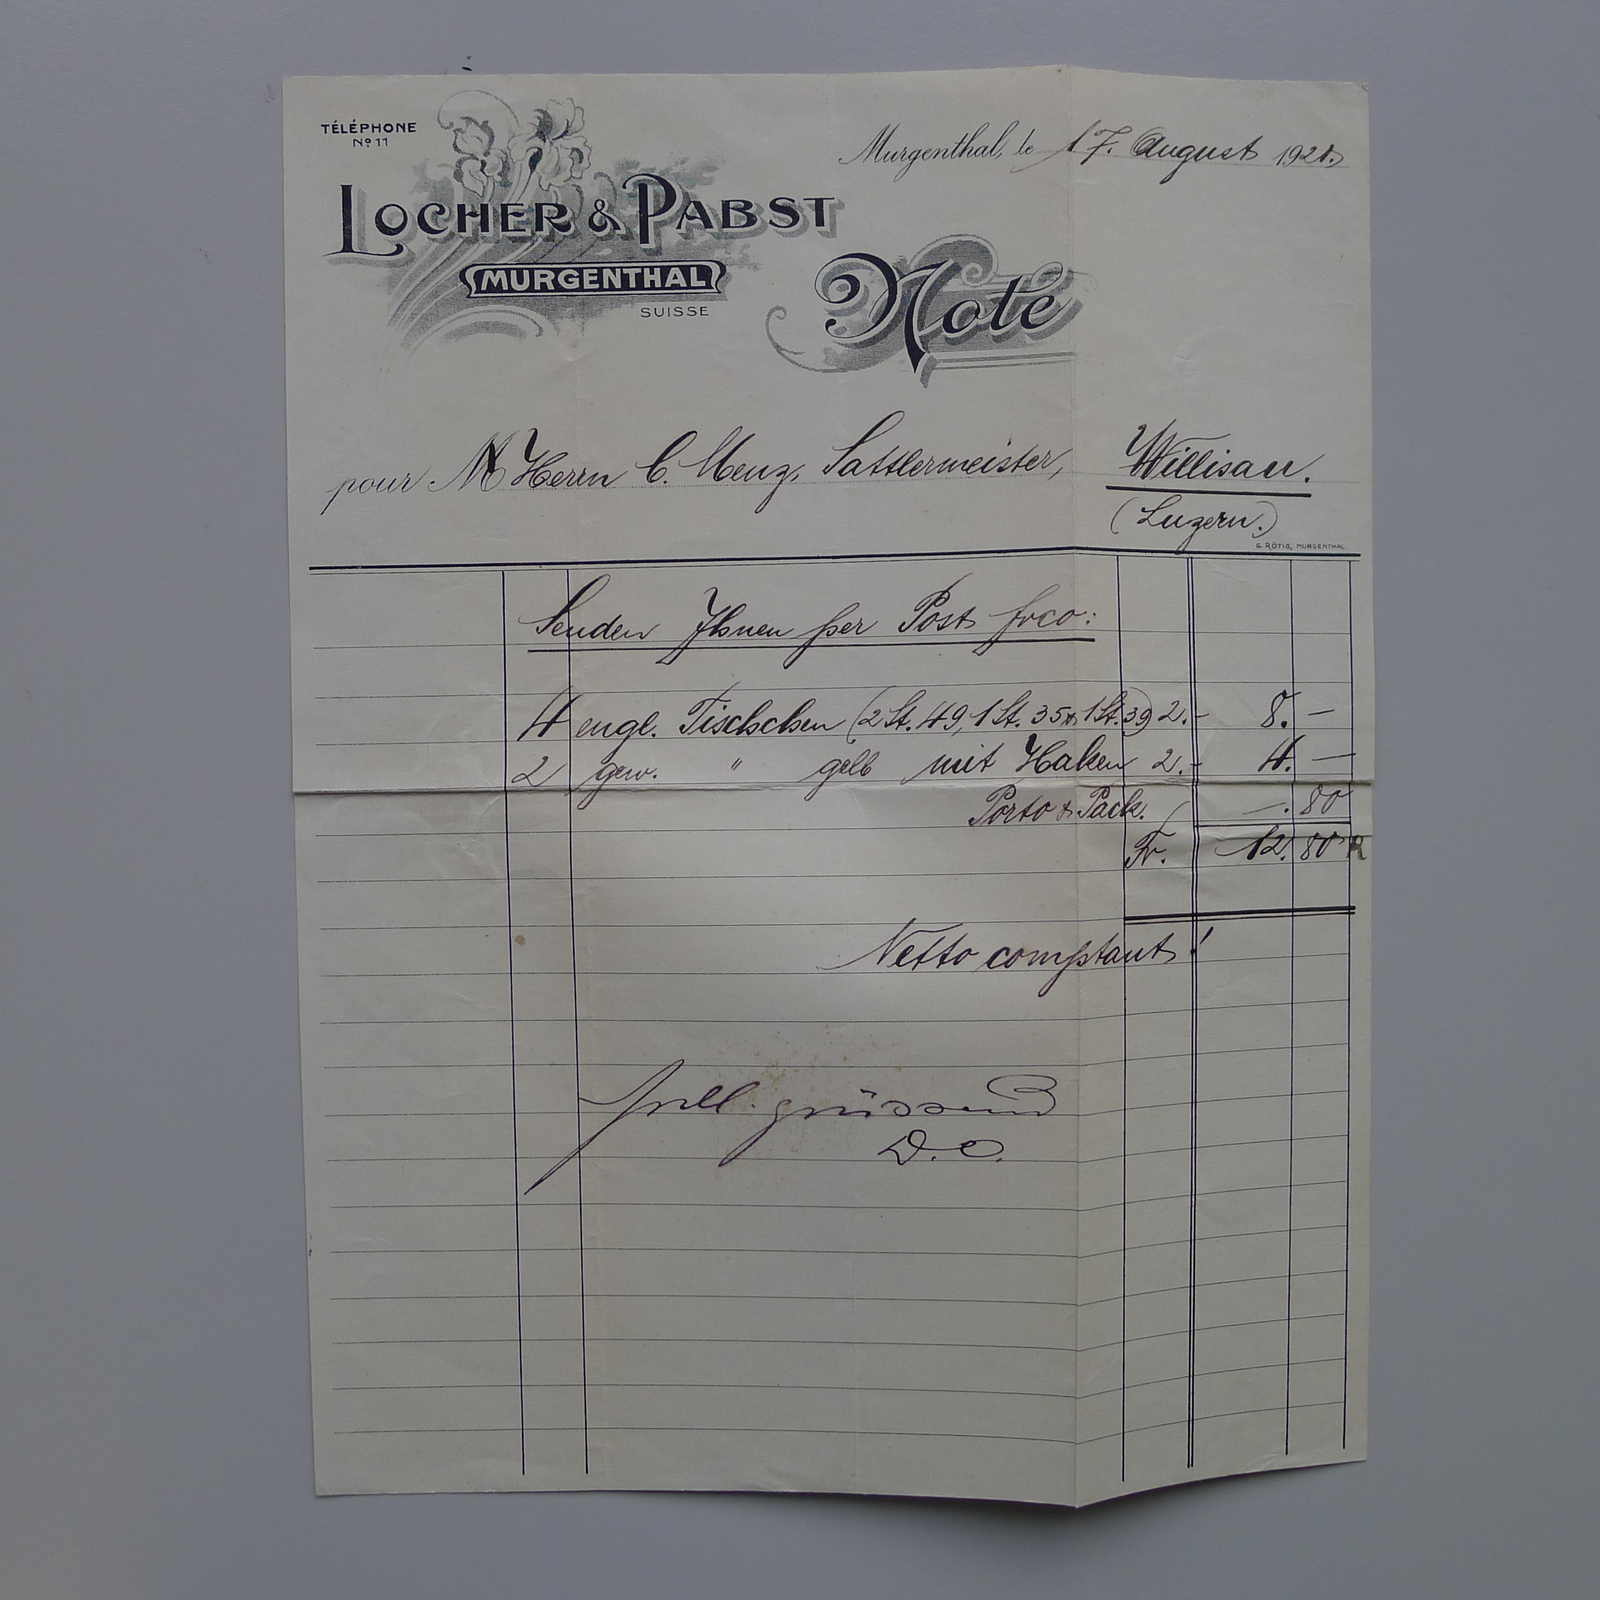 TÉLÉPHONE
Nº 11
Murgenthal, le 17. August 1921.
LOCHER & PABST
MURGENTHAL
SUISSE
Note
pour M Herrn C. Menz, Sattlermeister, Willisau.
(Luzern.)
G. RÖTIG, MURGENTHAL
Senden Ihnen per Post frco:
4 engl. Tischchen (2 St. 49, 1 St. 35 & 1 St. 39) 2.- 8. —
2 gew. " gelb mit Haken 2.- 4. —
Porto & Pack. —. 80
Fr. 12. 80
Netto comptant!
grüssend